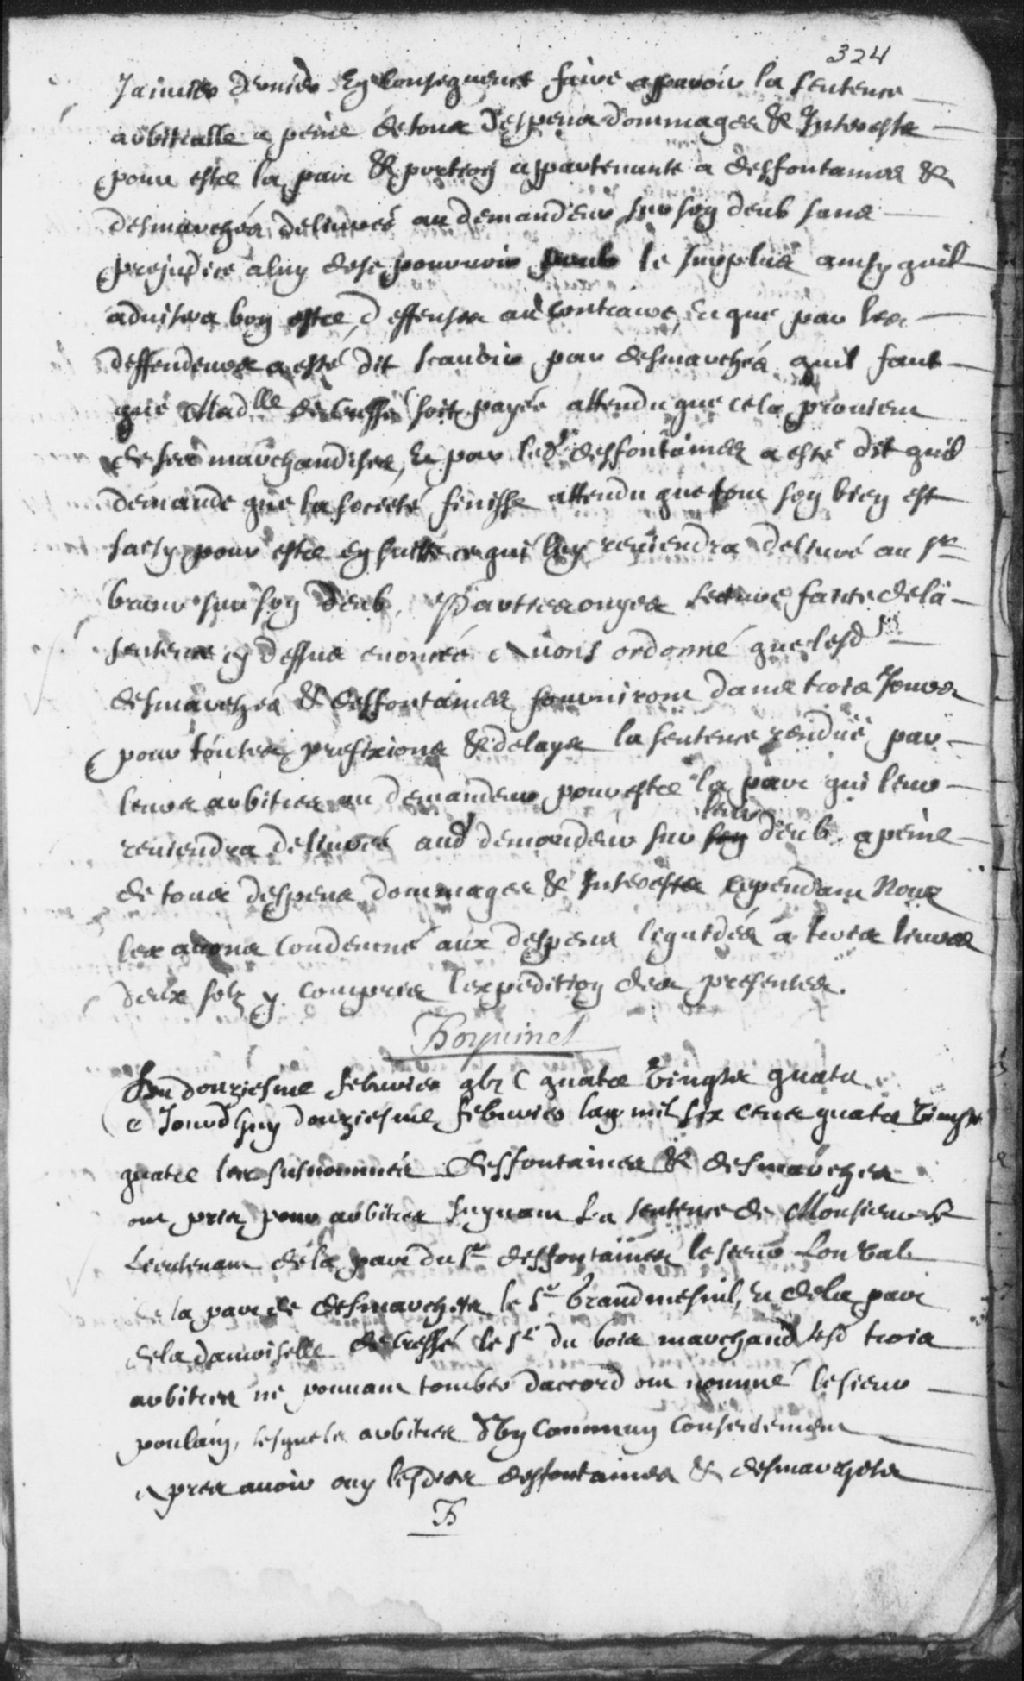 324
Januier dernier En Consequence faire apparoir la sentence
arbitralle a peine de tous despens dommages & Interests
pour estre la part & portion appartenante a desfontaines &
desmarchés deliurée au demandeur sur son deub sans
prejudice a luy de se pouruoir pour le surplus ainsy quil
aduisera bon estre, deffenses au contraire, Et que par les
deffendeurs a esté dit scauoir par desmarchés quil faut
que Madlle de Cressé soit payée attendu que cela prouient
de ses marchandises, Et par led. desfontaines a esté dit quil
demande que la societé finisse attendu que tout son bien est
saisy pour estre ensuitte ce qui luy reuiendra deliuré au sr
brun sur son deub, Parties ouyes lecture faite de la
sentence cy dessus enoncée Auons ordonné que lesd
desmarchés & desfontaines fourniront dans trois Jours
pour toutes prefixions & delays la sentence rendue par
leurs arbitres au demandeur pour estre la part qui leur
reuiendra deliurée aud demandeur sur leur deub a peine
de tous despens dommages & Interests cependant Nous
les auons Condemné aux despens liquidés a trois liures
deux solz y compris lexpedition des presentes.
Borquinet
Du douziesme feburier gbi C quatre vingts quatre
Ce Jourdhuy douziesme feburier lan mil six cents quatre vingts
quatre les susnommés desfontaines & desmarches
ont pris pour arbitres suyuant La sentence de Monsieur le
Lieutenant de la part du sr desfontaines le sieur Lonval
de la part de desmarches le sr Grandmesnil, Et de la part
de la damoiselle de Cressé le sr du bois marchand lesd trois
arbitres ne pouuant tomber daccord ont nommé le sieur
poulain, lesquels arbitres dun Commun Consentement
apres auoir ouy lesdits desfontaines & desmarchets
B